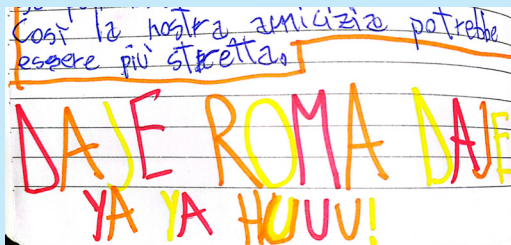 Così la nostra amicizia potrebbe
essere più stretta.
DAJE ROMA DAJE
YA YA HUUUU!